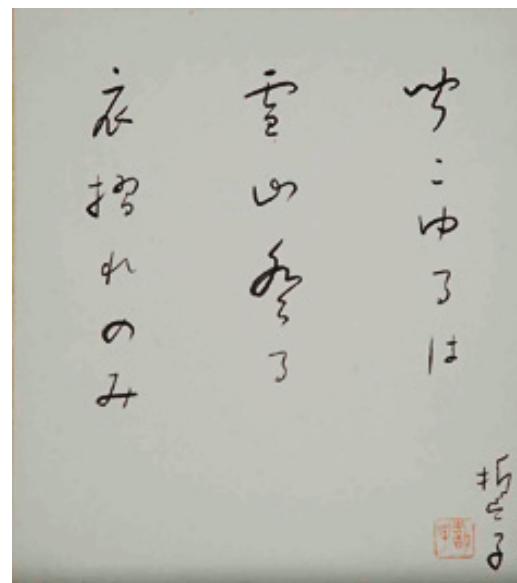 聞こゆるは
雪山登る
衣摺れのみ
誓子